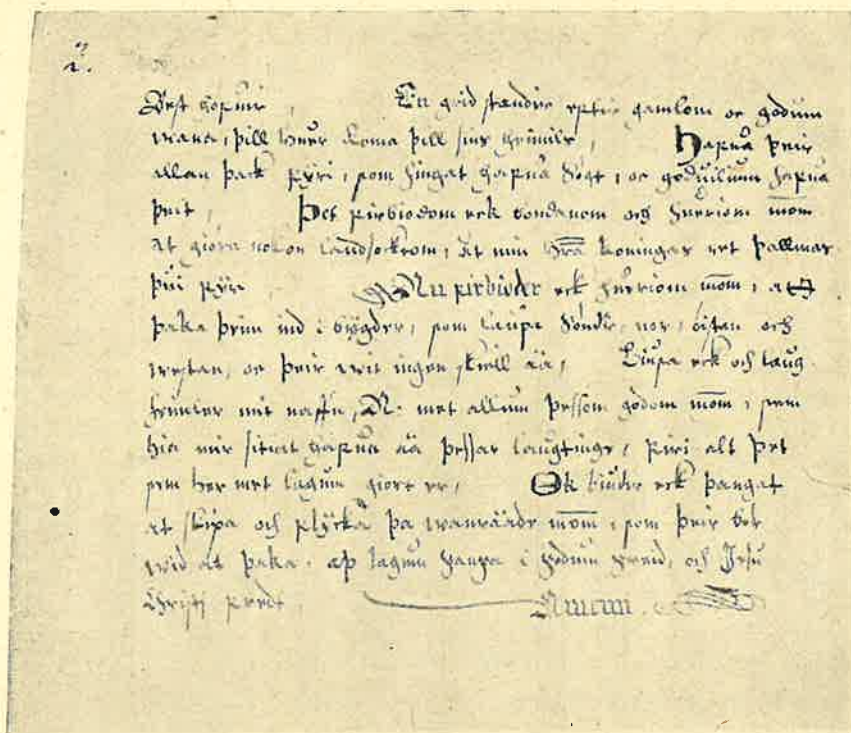 2.
En grid standir eptir gamlom oc godum
uana, þill huer koma þill sins heimile, Hafua þeir
allan þack fyri, som hingat hafua sögt, oc goduilium hafua
þeit, Þet firbiodom eck bondanom och huriom mom
at giöra nokon landsockrom, at min hra koningar ret
þui fyri Nu firbiuder eck huriom mom, at
þaka þeim ind i bygder, som laupa sönder, nor, östan och
westan, oc þeir wit ingen skiell ää, Liusa eck och laug
mit naffn, N. met allum þessom godom mom, som
hia mir sitiat hafua ää þessar laugtinge, firi alt þet
som her met lagum giort er, Ok biuder eck þangat
at skipa och flyckä þa wanräade mom, som þeir
wid at þaka, ap lagum ganga i godum fred, och Jesu
Christi fredt, Amen.